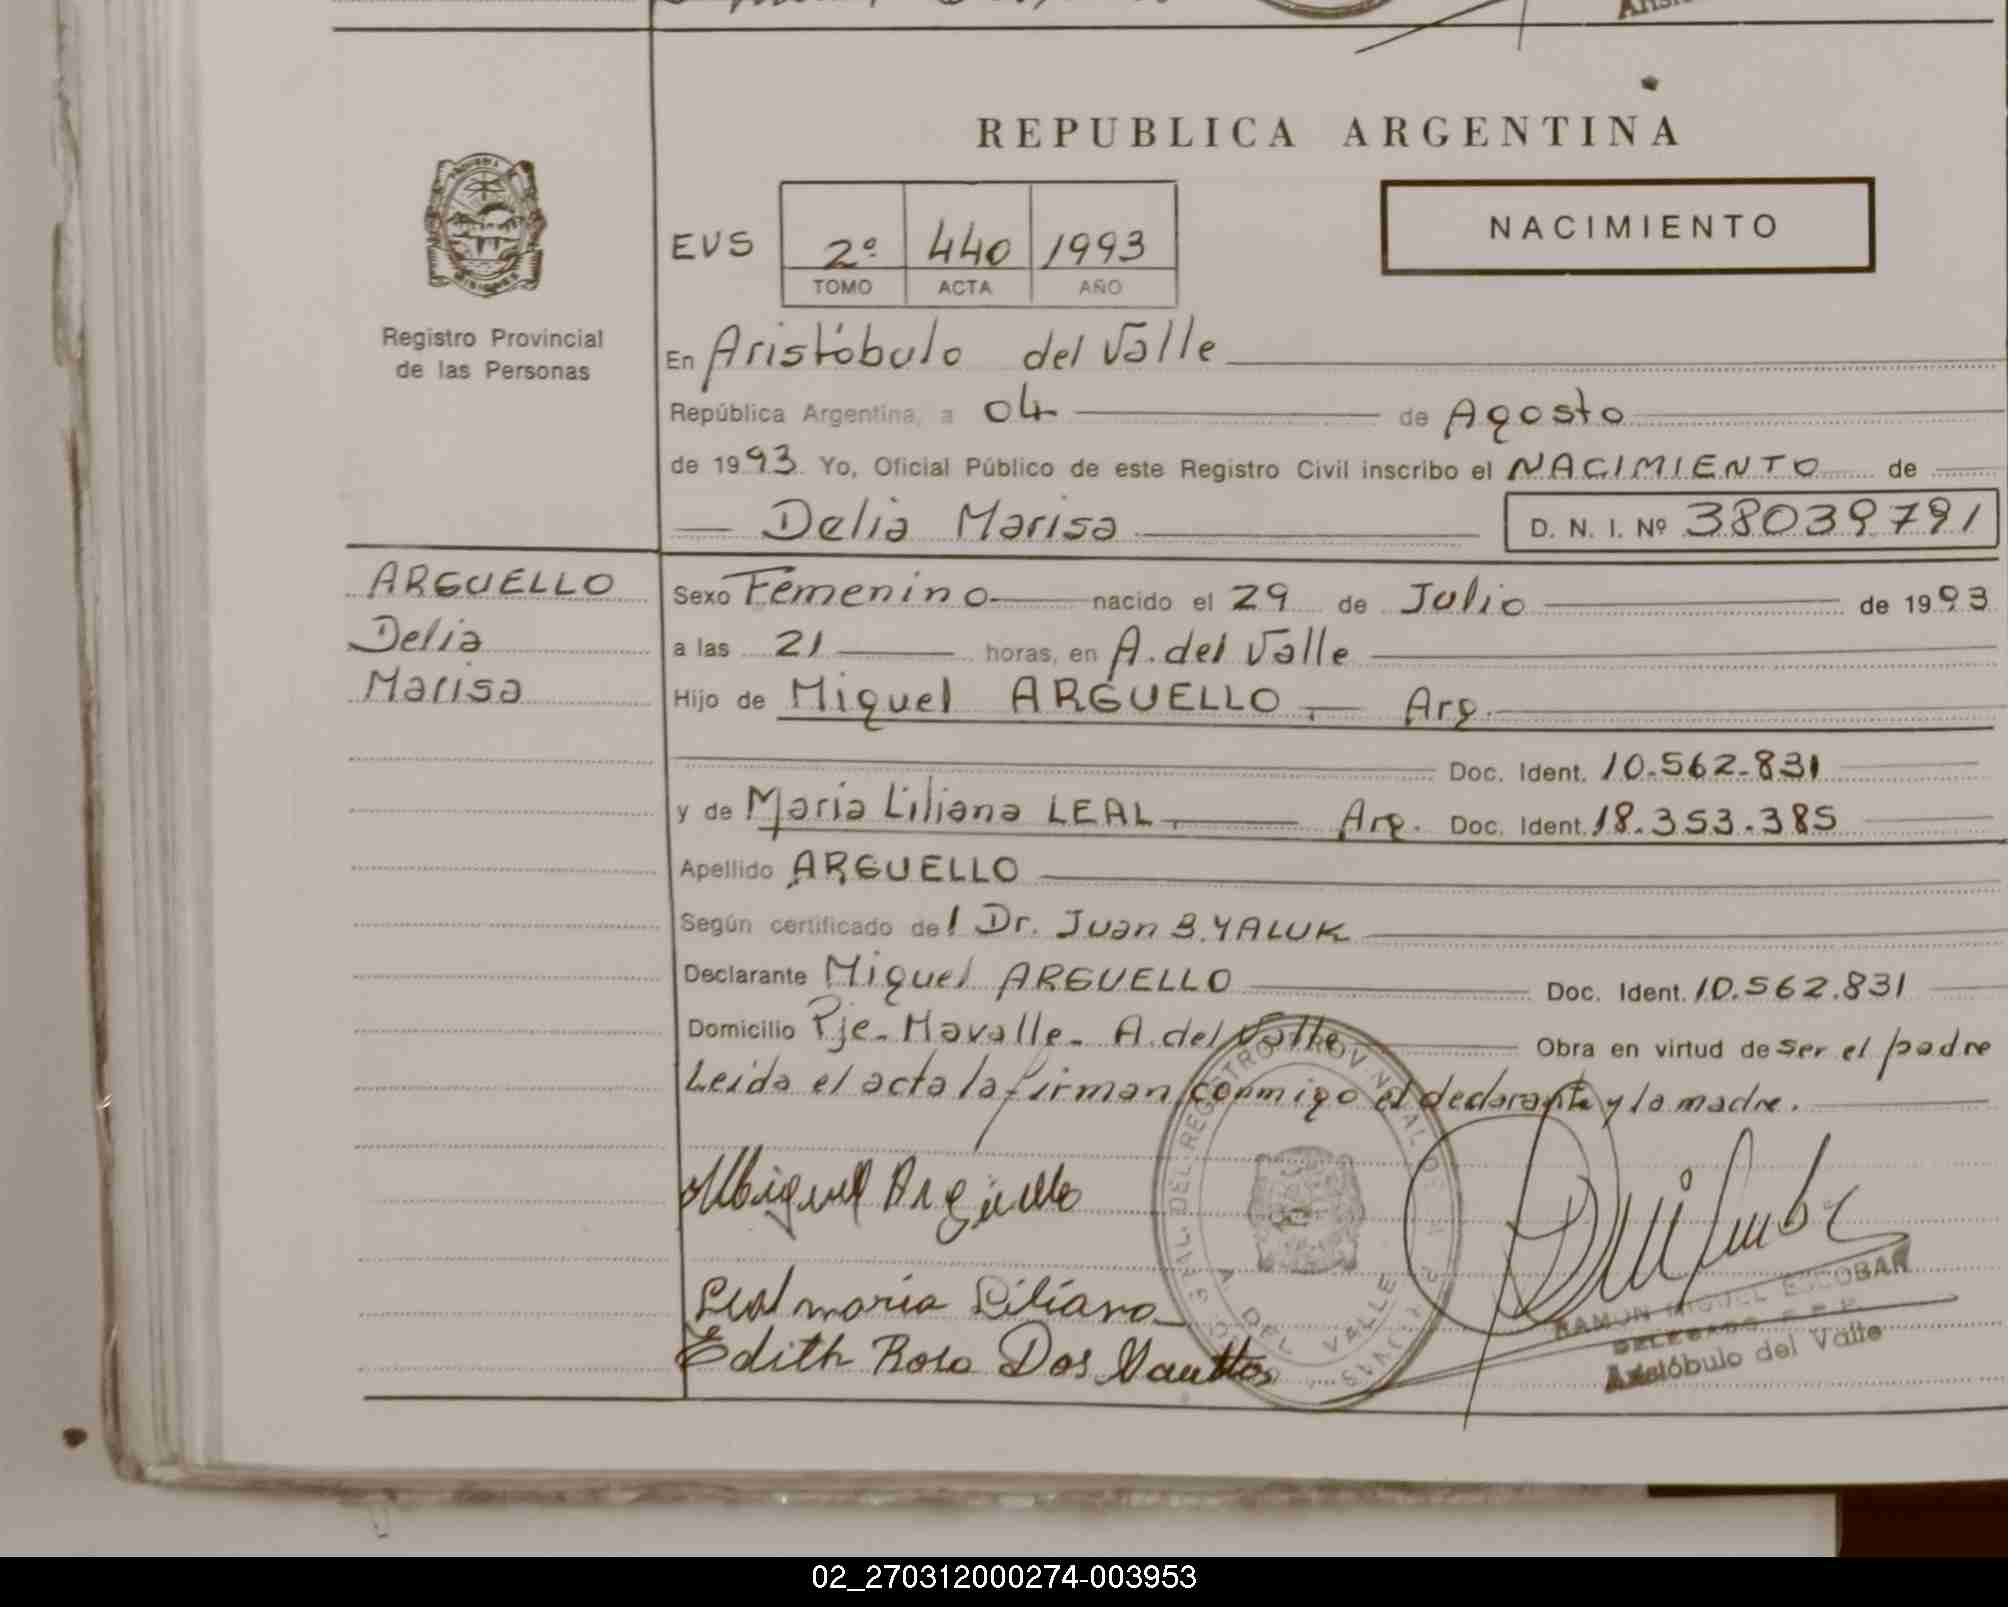 REPUBLICA ARGENTINA
NACIMIENTO
EVS 2º 440 1993
TOMO ACTA AÑO
Registro Provincial
de las Personas
En Aristóbulo del Valle
República Argentina, a 04 de Agosto
de 1993 Yo, Oficial Público de este Registro Civil inscribo el NACIMIENTO de
Delia Marisa D. N. I. Nº 38039791
ARGUELLO
Delia
Marisa
Sexo Femenino nacido el 29 de Julio de 1993
a las 21 horas, en A. del Valle
Hijo de Miguel ARGUELLO Arg.
Doc. Ident. 10.562-831
y de Maria Liliana LEAL Arg. Doc. Ident. 18.353.385
Apellido ARGUELLO
Según certificado del Dr. Juan B. YALUK
Declarante Miguel ARGUELLO Doc. Ident. 10.562.831
Domicilio Pje. Mavalle. A. del Valle Obra en virtud de ser el padre
Leida el acta la firman conmigo el declarante y la madre.
Miguel Argüello
Leal maria Liliana
Edith Rosa Dos
A. DEL VALLE
RAMON MIGUEL ESCOBAR
DELEGADO
Aristóbulo del Valle
02_270312000274-003953